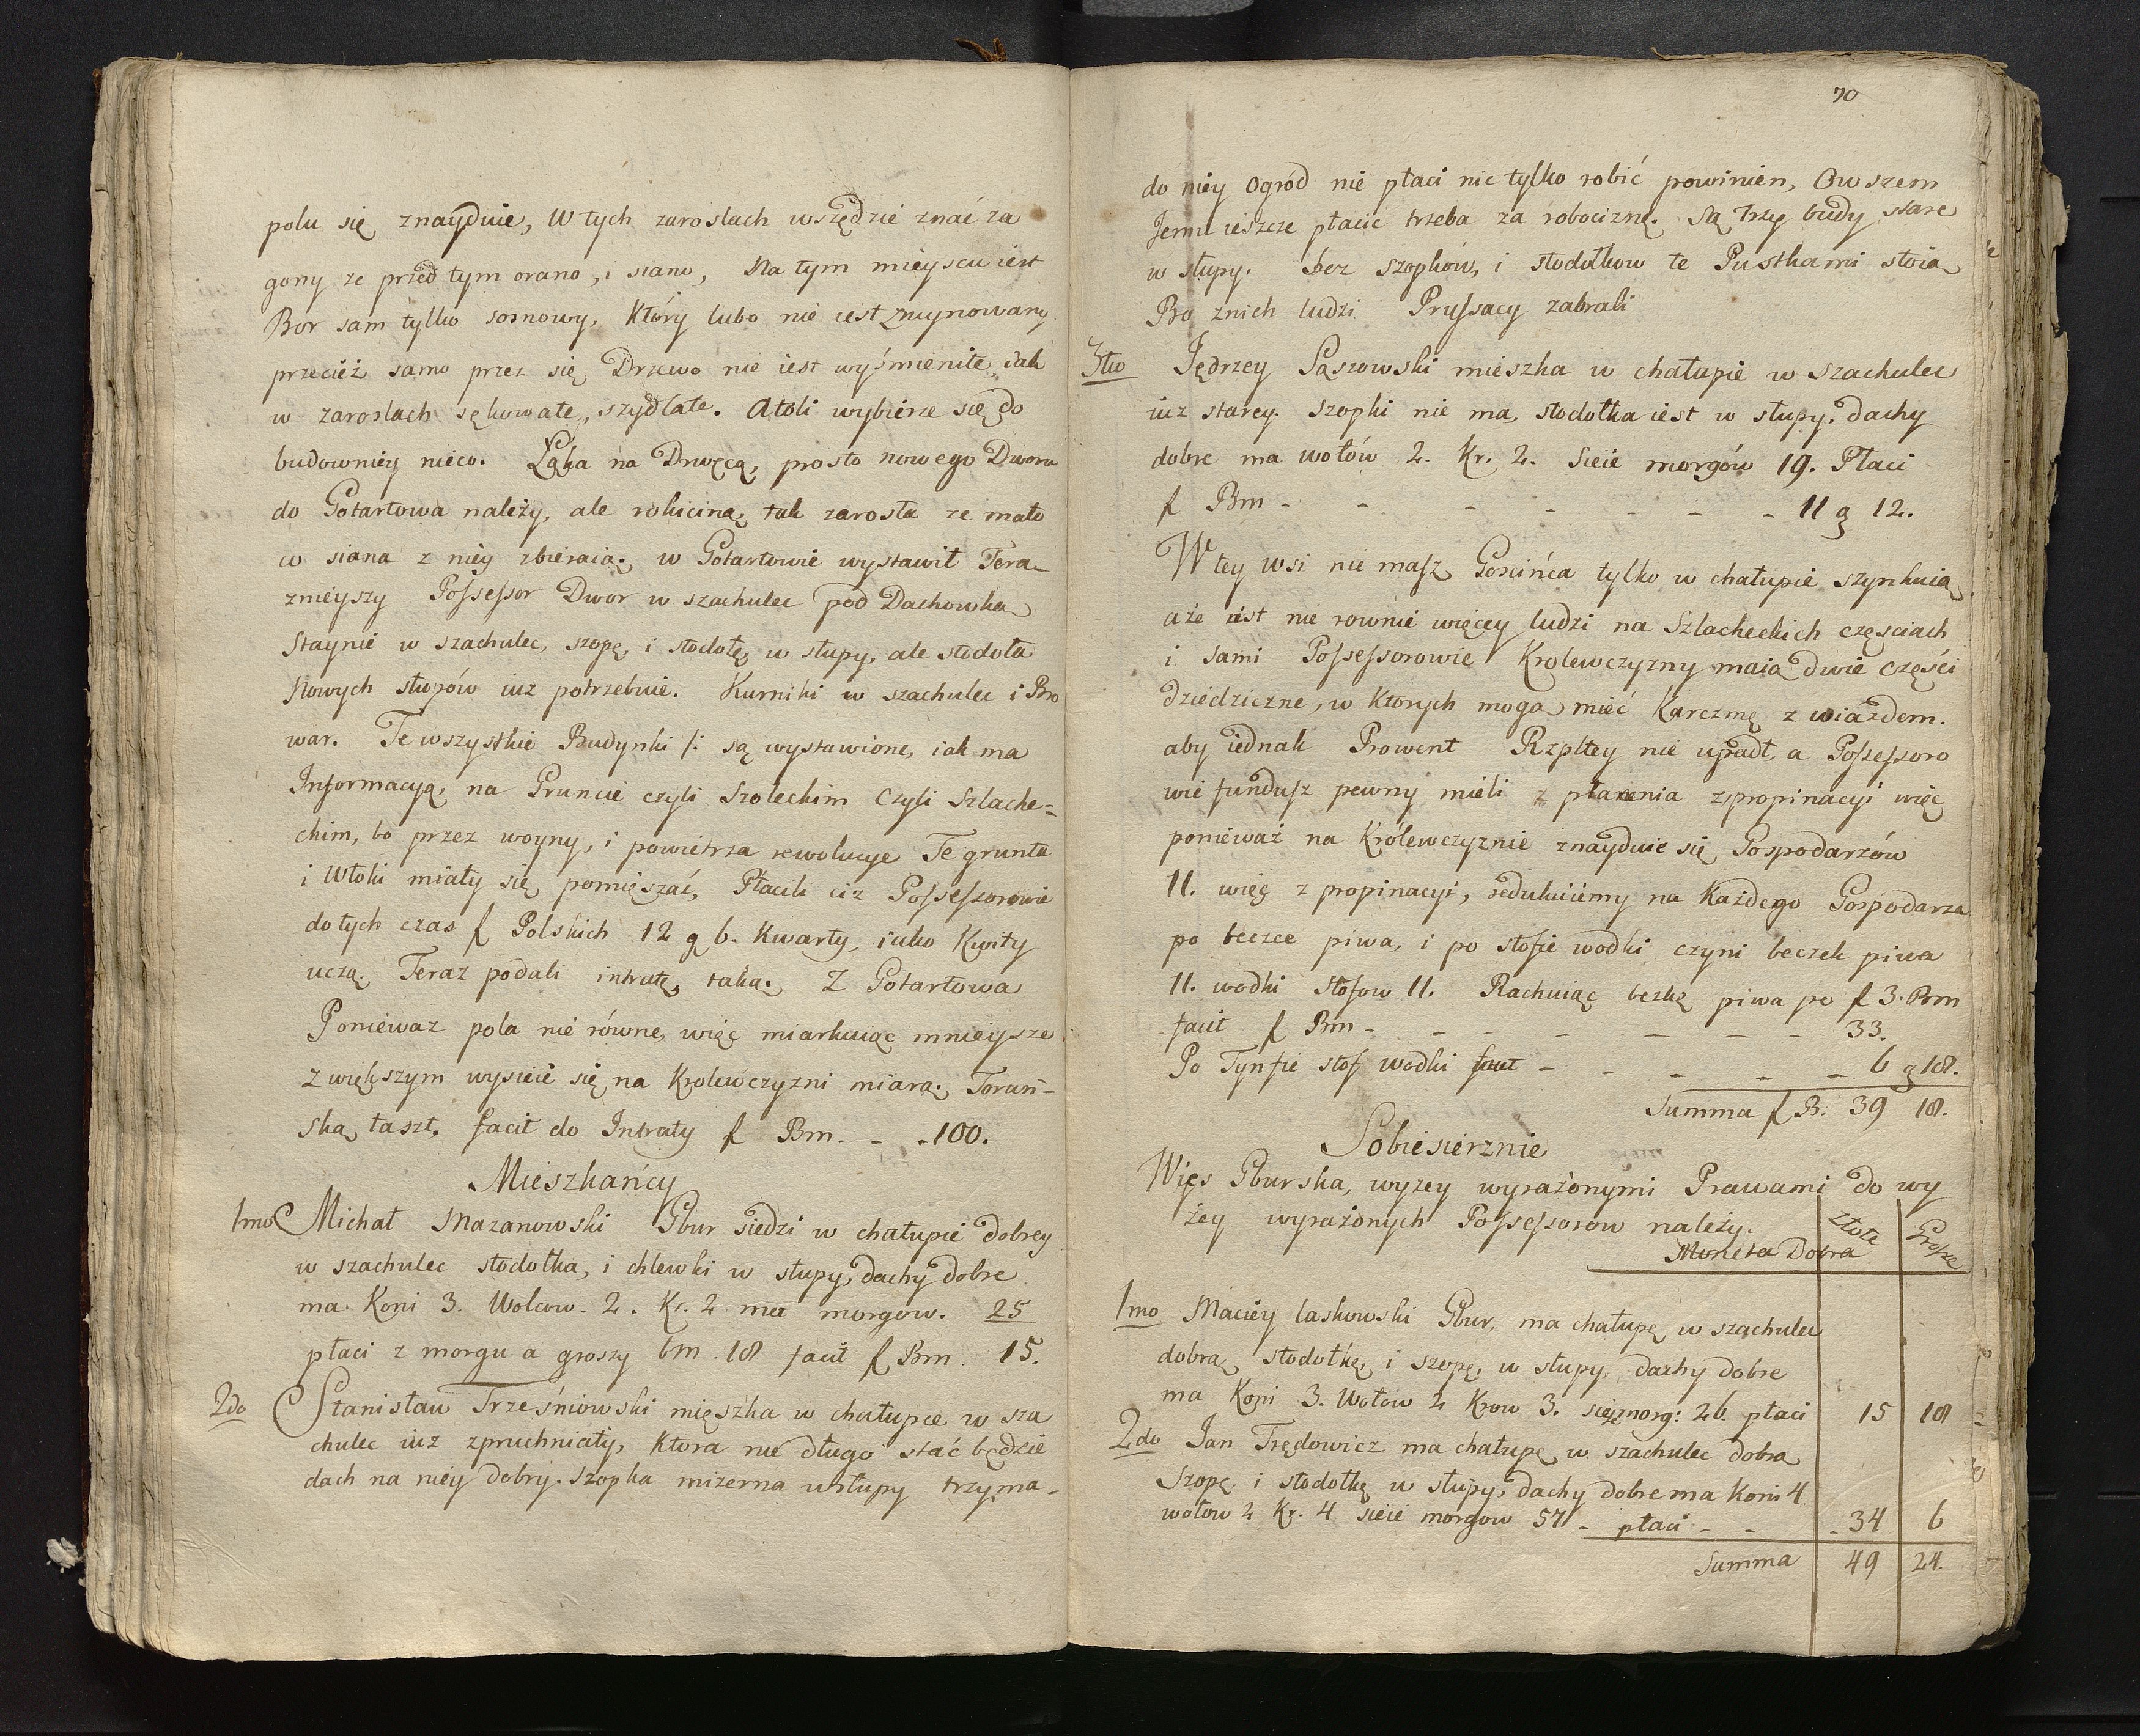 polu się znayduie, W tych zaroslach wszędzie znać za
gony ze przed tym orano, i siano, Na tym mieyscu iest
Bor sam tylko sosnowy, Który lubo nie iest zruynowany
przecież samo przez się Drzewo nie iest wyśmienite, iak
w zaroslach sękowate, szydlate. Atoli wybierze się do
budowniey nieco. Łąka na Drwęcą, prosto nowego Dworu
do Gotartowa należy, ale rokiciną tak zarosła ze mało
co siana z niey zbieraią. w Gotartowie wystawił Tera-
znieyszy Possessor Dwor w szachulec pod Dachowką
Staynie w szachulec, szopę, i stodołę w słupy, ale stodoła
Nowych słupów iuz potrzebuie. Kurniki w szachulec i Bro
war. Te wszystkie Budynki /: są wystawione, iak ma
Informacyą, na Gruncie czyli Szoleckim Czyli Szlache=
ckim, bo przez woyny, i powietrza rewolucye Te grunta
i Włoki miały się pomięszać, Płacili ciz Possessorowie
do tych czas f Polskich 12 g 6. Kwarty, iako Kwity
uczą. Teraz podali intratę taką. Z Gotartowa
Poniewaz pola nie równe, więc miarkuiąc mnieysze
z większym wysieie się na Krolewczyzni miarą Toruń-
ską łaszt. facit do Intraty f Bm. - - 100.
Mieszkańcy
1mo Michał Mazanowski Gbur siedzi w chałupie dobrey
w szachulec stodołka, i chlewki w słupy, dachy dobre
ma Koni 3. Wolcow. 2. Kr. 2 ma morgow. 25
płaci z morgu a groszy bm. 18 facit f Bm. 15.
2do Stanisław Trześniowski mięszka w chałupce w sza
chulec iuz zpruchniały, Ktora nie długo stać będzie
dach na niey dobry. Szopka mizerna w słupy trzyma-
70
do niey Ogród nie płaci nic tylko robić powinien, Owszem
Jemu ieszcze płacic trzeba za robociznę. Są Trzy budy stare
w słupy. bez szopków, i stodołkow te Pustkami stoią
Bo znich ludzi Prussacy zabrali
3tio Jędrzey Sąszowski mieszka w chałupie w szachulec
iuz starey. Szopki nie ma, stodołka iest w słupy. dachy
dobre ma wołów 2. Kr. 2. Sieie morgów 19. Płaci
f Bm - - - - - - - 11 g 12.
W tey wsi nie masz Gościńca tylko w chałupie szynkuią
a że iest nie rownie więcey ludzi na Szlacheckich częsciach
i sami Possessorowie Krolewczyzny maią dwie części
dziedziczne, w Ktorych mogą mieć Karczmę z wiazdem.
aby iednak Prowent Rzpltey nie upadł, a Possessoro
wie fundusz pewny mieli z płacenia z propinacyi więc
ponieważ na Królewczyznie znayduie się Gospodarzów
11. więc z propinacyi, redukuiemy na Każdego Gospodarza
po beczce piwa, i po stofie wodki czyni beczek piwa
11. wodki stofow 11. Rachuiąc beczkę piwa po f 3. Bm
facit f Bm - - - - - - - 33.
Po Tynfie stof wodki facit - - - - - 6 g 18.
Summa f B. 39 18.
Sobiesierznie
Wies Gburska, wyzey wyrażonymi Prawami do wy
żey wyrażonych Possessorow należy.
Moneta Dobra Złote Grosze
1mo Maciey Laskowski Gbur, ma chałupę w szachulec
dobrą, stodołkę, i szopę, w słupy, dachy dobre
ma Koni 3. Wołow 2 Krow 3. sieie morg: 26. płaci 15 18
2do Jan Trędowicz ma chałupę w szachulec dobrą
Szopę i stodołkę w słupy, dachy dobre ma Koni 4.
wołow 2 Kr. 4 sieie morgow 57 - płaci - - - 34 6
Summa 49 24.